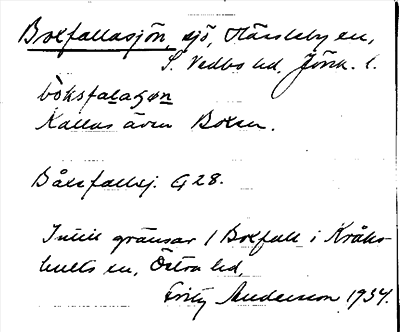 Boxfallasjön, sjö, Hässleby sn,
S. Vedbo hd, Jönk. l.
bòksfalaʃøn
Kallas även Boxen.
Båxefallsj. G 28.
Intill gränsar / Boxfall i Kråks-
hults sn, Östra hd,
Fritz Andersson 1934.